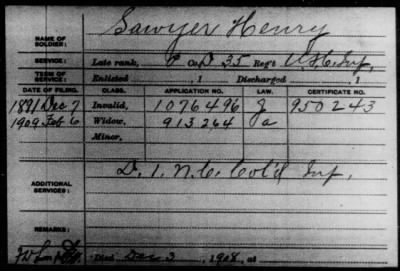 NAME OF SOLDIER: Sawyer Henry
SERVICE: Late rank, P Co. D 35 Reg't U.S.C. Inf,
TERM OF SERVICE: Enlisted , 1 Discharged , 1
DATE OF FILING. CLASS. APPLICATION NO. LAW. CERTIFICATE NO.
1891 Dec 7 Invalid, 1076496 J 950243
1909 Feb 6 Widow, 913264 a
Minor,
ADDITIONAL SERVICES: D. 1. N.C. Col'd Inf.
REMARKS:
Died Dec 3, 1908, at